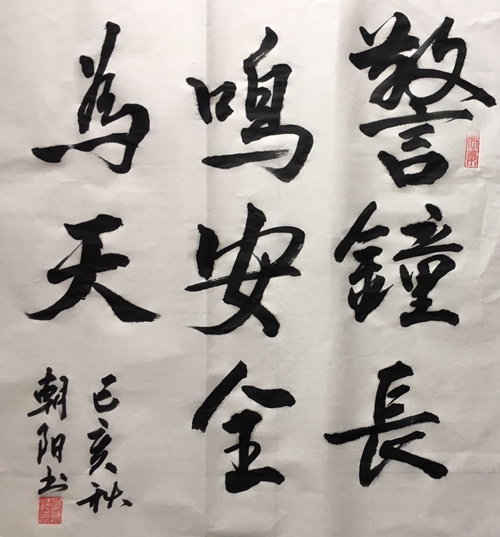 警鐘長
鳴安全
為天
己亥秋
朝阳书